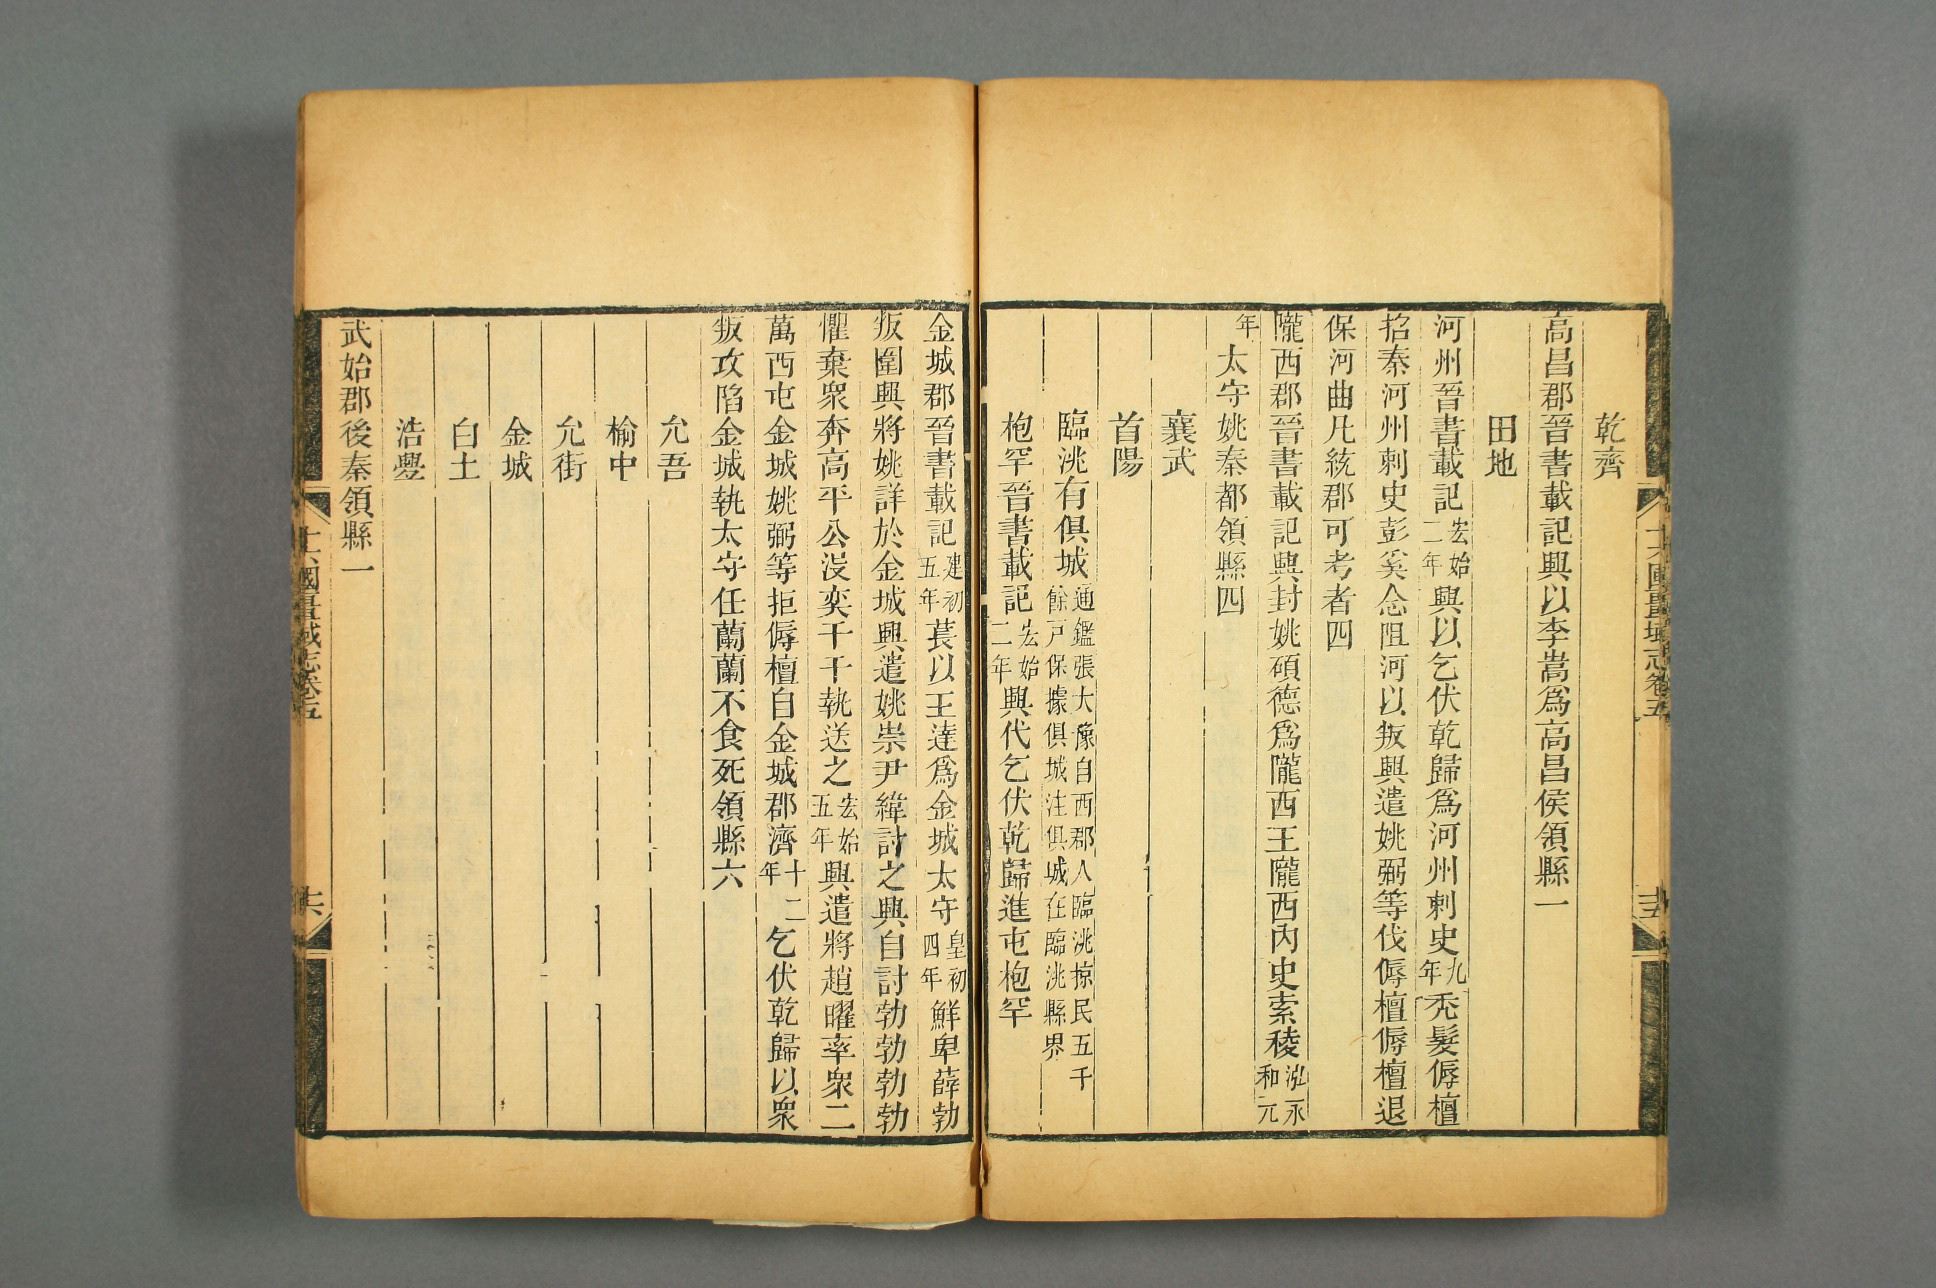 乾齊
高昌郡晉書載記興以李暠爲高昌侯領縣一
田地
河州晉書載記宏始二年興以乞伏乾歸爲河州刺史九年禿髮傉檀
招秦河州刺史彭奚念阻河以叛興遣姚弼等伐傉檀傉檀退
保河曲凡統郡可考者四
隴西郡晉書載記興封姚碩德爲隴西王隴西內史索稜泓永和元
年太守姚秦都領縣四
襄武
首陽
臨洮有俱城通鑑張大豫自西郡入臨洮掠民五千餘戸保據俱城注俱城在臨洮縣界
枹罕晉書載記宏始二年興代乞伏乾歸進屯枹罕
金城郡晉書載記建初五年萇以王達爲金城太守皇初四年鮮卑薛勃
叛圍興將姚詳於金城興遣姚崇尹緯討之興自討勃勃勃勃
懼棄衆奔高平公沒奕干干執送之宏始五年興遣將趙曜率衆二
萬西屯金城姚弼等拒傉檀自金城郡濟十二年乞伏乾歸以衆
叛攻陷金城執太守任蘭蘭不食死領縣六
允吾
榆中
允街
金城
白土
浩亹
武始郡後秦領縣一
十六國疆域志卷五